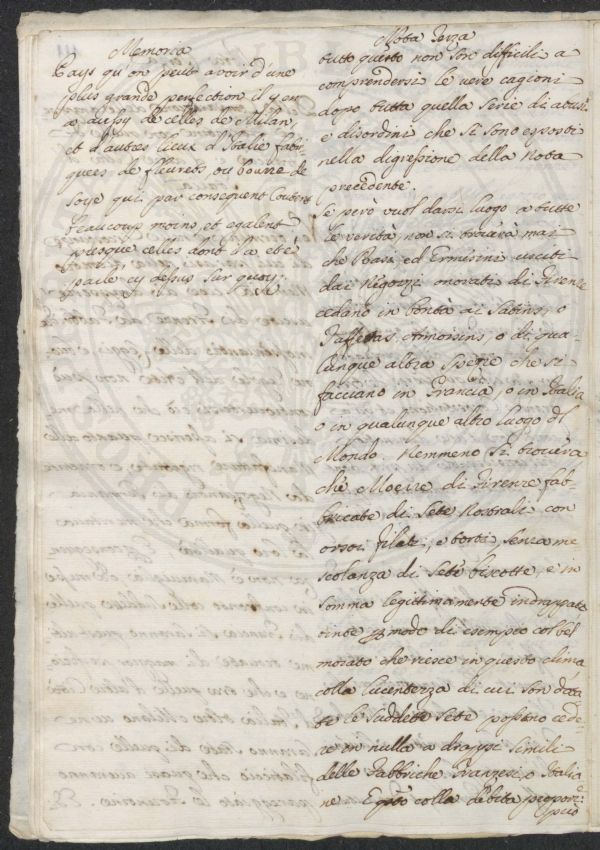 Memoria
Pays qu'on peut avoir d'une
plus grande perfection il y en
a aussy de celles de Milan,
et d'autres lieux d'Italie fabri-
quees de fleurets ou bourre de
soye qui par consequent coutent
beaucoup moins, et egalent
presque celles dont il a eté
parlé cy dessus sur quoy.
Nota Terza
tutto questo non son difficili a
comprendersi le vere cagioni
dopo tutta quella serie di abusi
e disordini che si sono esposti
nella digressione della Nota
precedente.
Se però vuol darsi luogo a tutte
le verità, non si troverà mai
che Rasi, ed Ermisini usciti
dai Negozzi onorati di Firenze
cedano in bontà ai Satins, o
Taffetas, Armoisins, o di qua-
lunque altra Spezie che si
facciano in Francia, o in Italia
o in qualunque altro luogo del
Mondo. Nemmeno si troverà
che Moerre di Firenze fab-
bricate di Sete Nostrali con
orsoi filati, e torti senza me
scolanza di Sete biscotte, e in
somma legittimamente indrappate
tinte per modo di esempio col bel
morato che riesce in questo clima
colla lucentezza di cui son data
te le suddette Sete possano cede-
re in nulla a drappi simili
delle Fabbriche Franzesi, o Italia
ne
colla debita proporz: